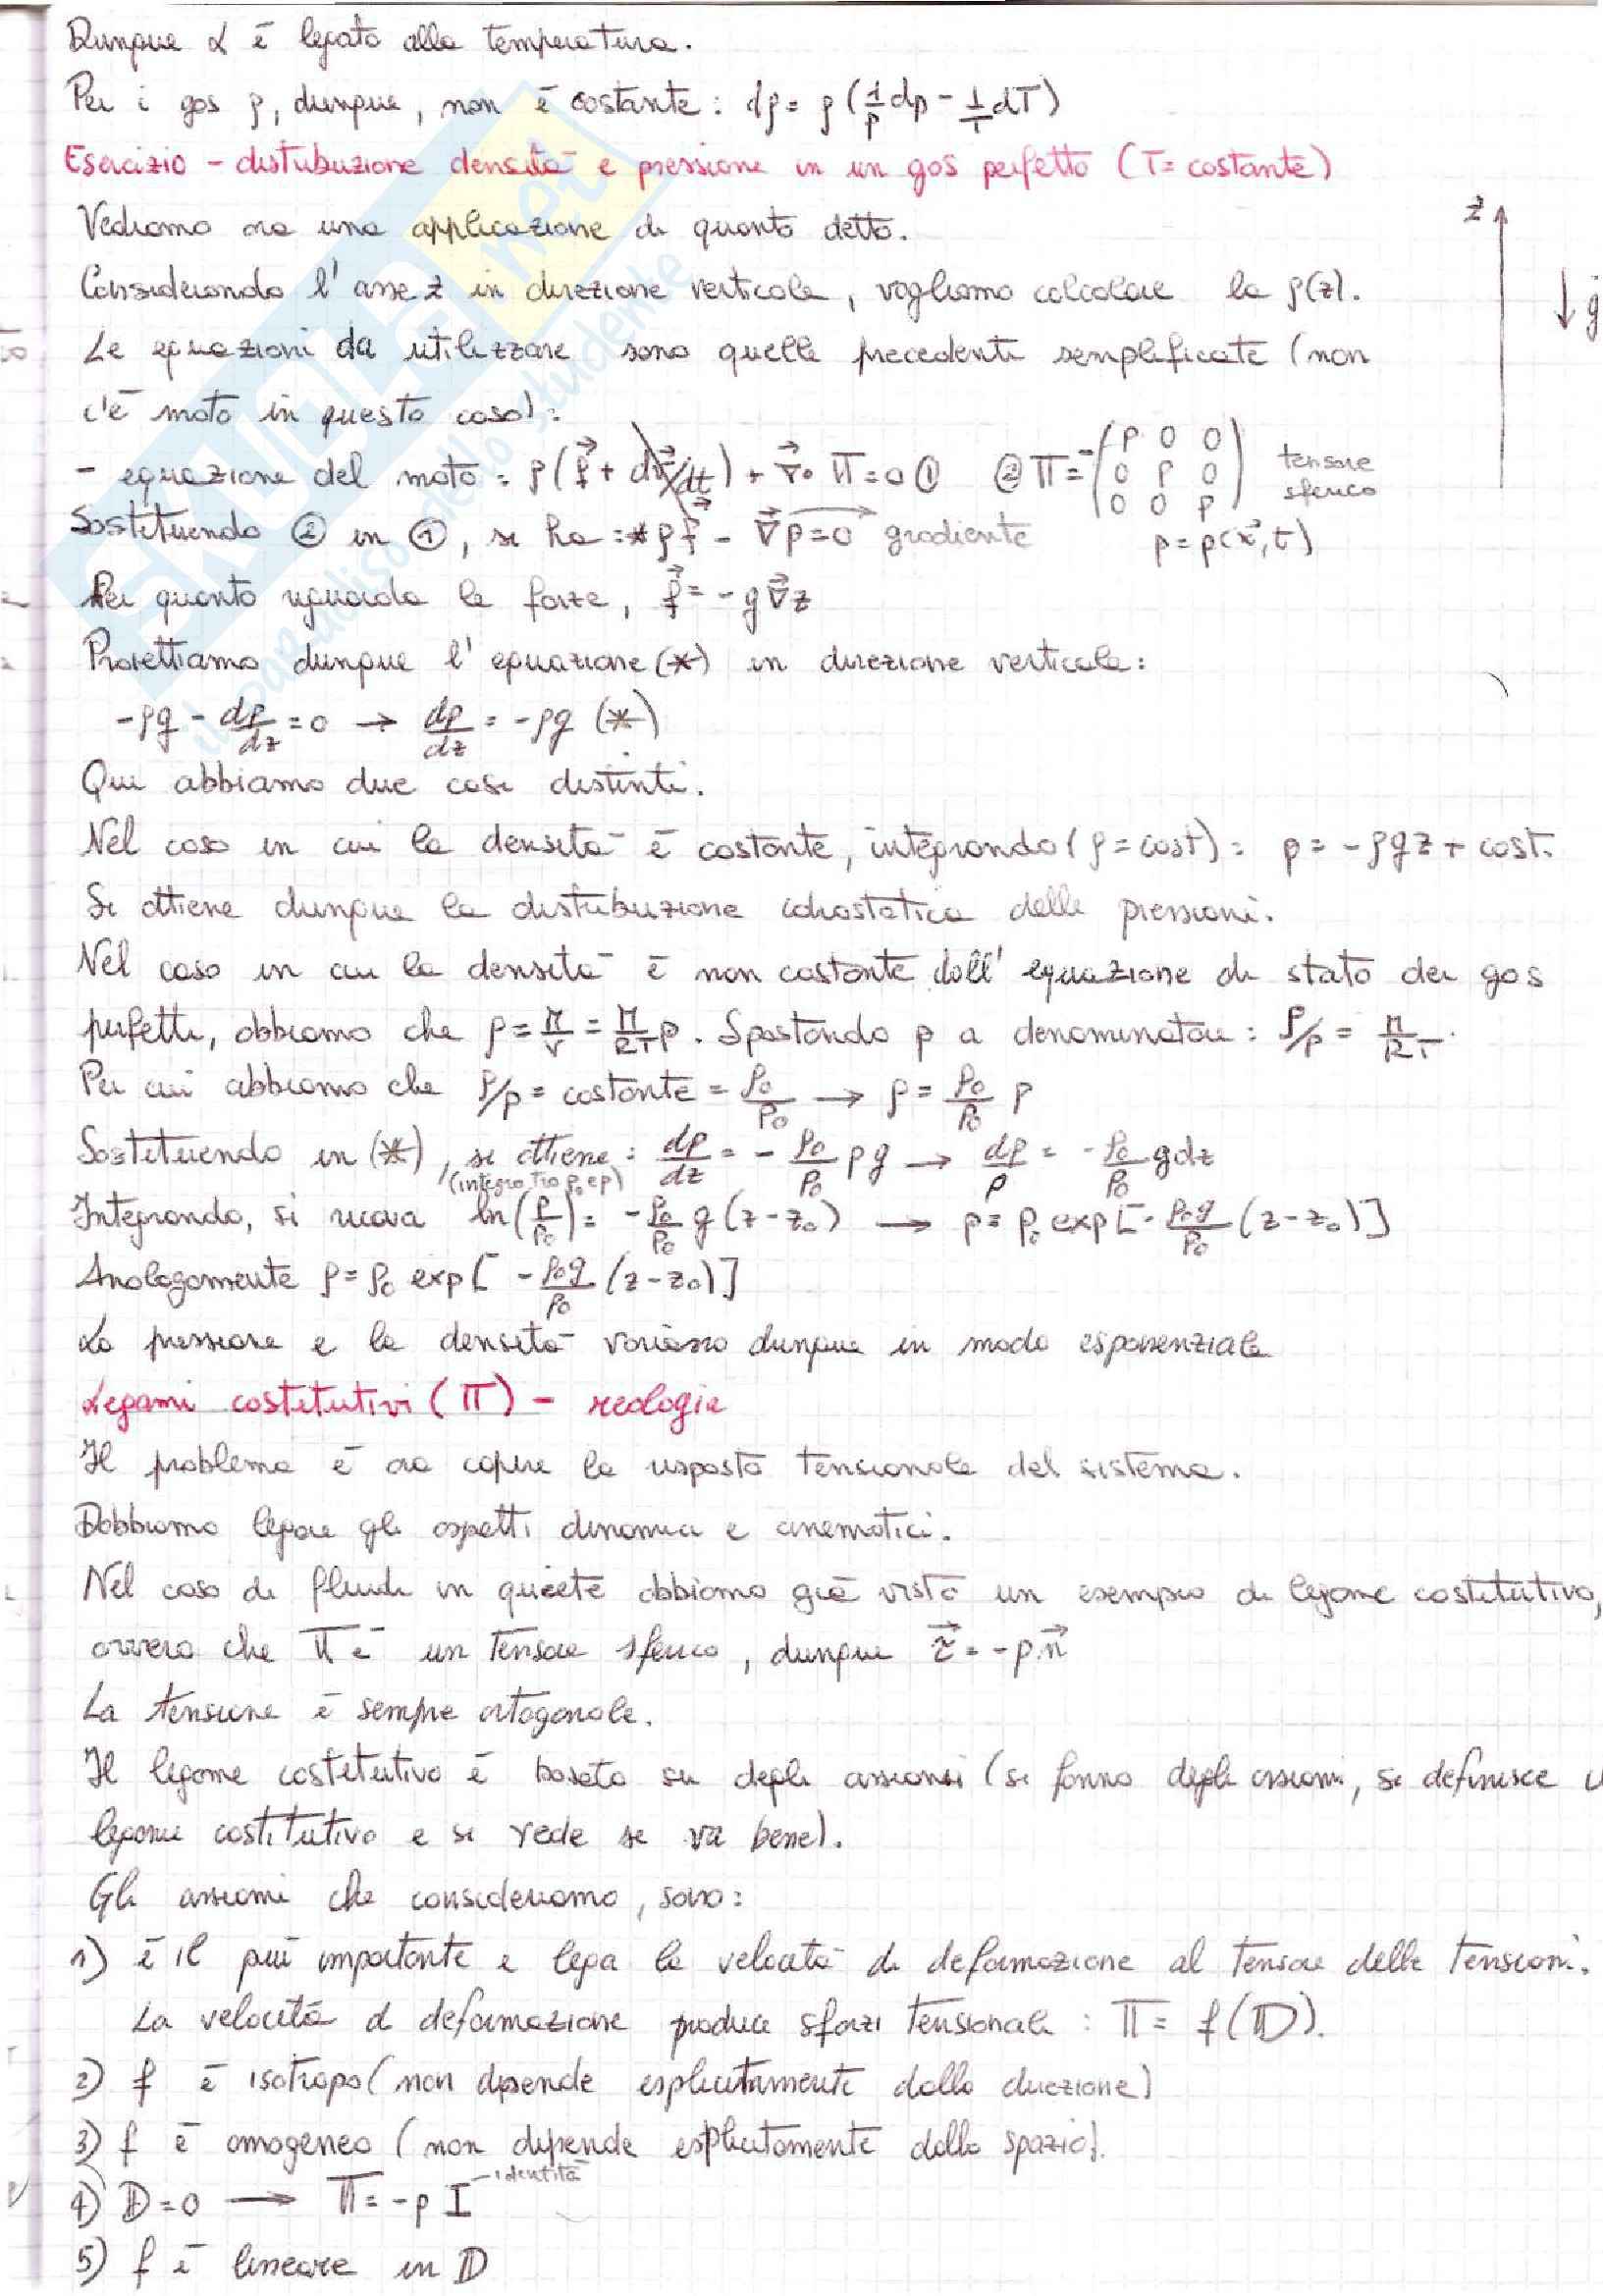 Dunque α è legato alla temperatura.
Per i gas ρ, dunque, non è costante: dρ = ρ(1/p dp - 1/T dT)
Esercizio - distribuzione densità e pressione in un gas perfetto (T= costante)
Vediamo ora una applicazione di quanto detto.
Considerando l'asse z in direzione verticale, vogliamo calcolare la ρ(z).
z
g
Le equazioni da utilizzare sono quelle precedenti semplificate (non
c'è moto in questo caso):
- equazione del moto: ρ(f + dv/dt) + ∇· Π = 0 ① ② Π = -(p 0 0 / 0 p 0 / 0 0 p) tensore sferico
Sostituendo ② in ①, si ha: * ρf - ∇p = 0 → gradiente p = p(x, t)
Per quanto riguarda le forze, f = -g∇z
Proiettiamo dunque l'equazione (*) in direzione verticale:
-ρg - dp/dz = 0 → dp/dz = -ρg (*)
Qui abbiamo due casi distinti.
Nel caso in cui la densità è costante, integrando (ρ = cost): p = -ρgz + cost.
Si ottiene dunque la distribuzione idrostatica delle pressioni.
Nel caso in cui la densità è non costante dall'equazione di stato dei gas
perfetti, abbiamo che ρ = M/V = M/RT p. Spostando p a denominatore: ρ/p = M/RT.
Per cui abbiamo che ρ/p = costante = ρ₀/p₀ → ρ = ρ₀/p₀ p
Sostituendo in (*), si ottiene: dp/dz = - ρ₀/p₀ pg → dp/p = - ρ₀/p₀ gdz
(integro tra p₀ e p)
Integrando, si ricava ln(p/p₀) = - ρ₀/p₀ g (z-z₀) → p = p₀ exp[- ρ₀g/p₀ (z-z₀)]
Analogamente ρ = ρ₀ exp[- ρ₀g/p₀ (z-z₀)]
La pressione e la densità variano dunque in modo esponenziale
Legami costitutivi (Π) - reologia
Il problema è ora capire la risposta tensionale del sistema.
Dobbiamo legare gli aspetti dinamici e cinematici.
Nel caso di fluidi in quiete abbiamo già visto un esempio di legame costitutivo,
ovvero che Π è un tensore sferico, dunque τ = -p n
La tensione è sempre ortogonale.
Il legame costitutivo è basato su degli assiomi (si fanno degli assiomi, si definisce u
legame costitutivo e si vede se va bene).
Gli assiomi che consideriamo, sono:
1) è il più importante e lega la velocità di deformazione al tensore delle tensioni.
La velocità di deformazione produce sforzi tensionali: Π = f(D).
2) f è isotropo (non dipende esplicitamente dalla direzione)
3) f è omogeneo (non dipende esplicitamente dallo spazio).
4) D = 0 → Π = -p I - identità
5) f è lineare in D